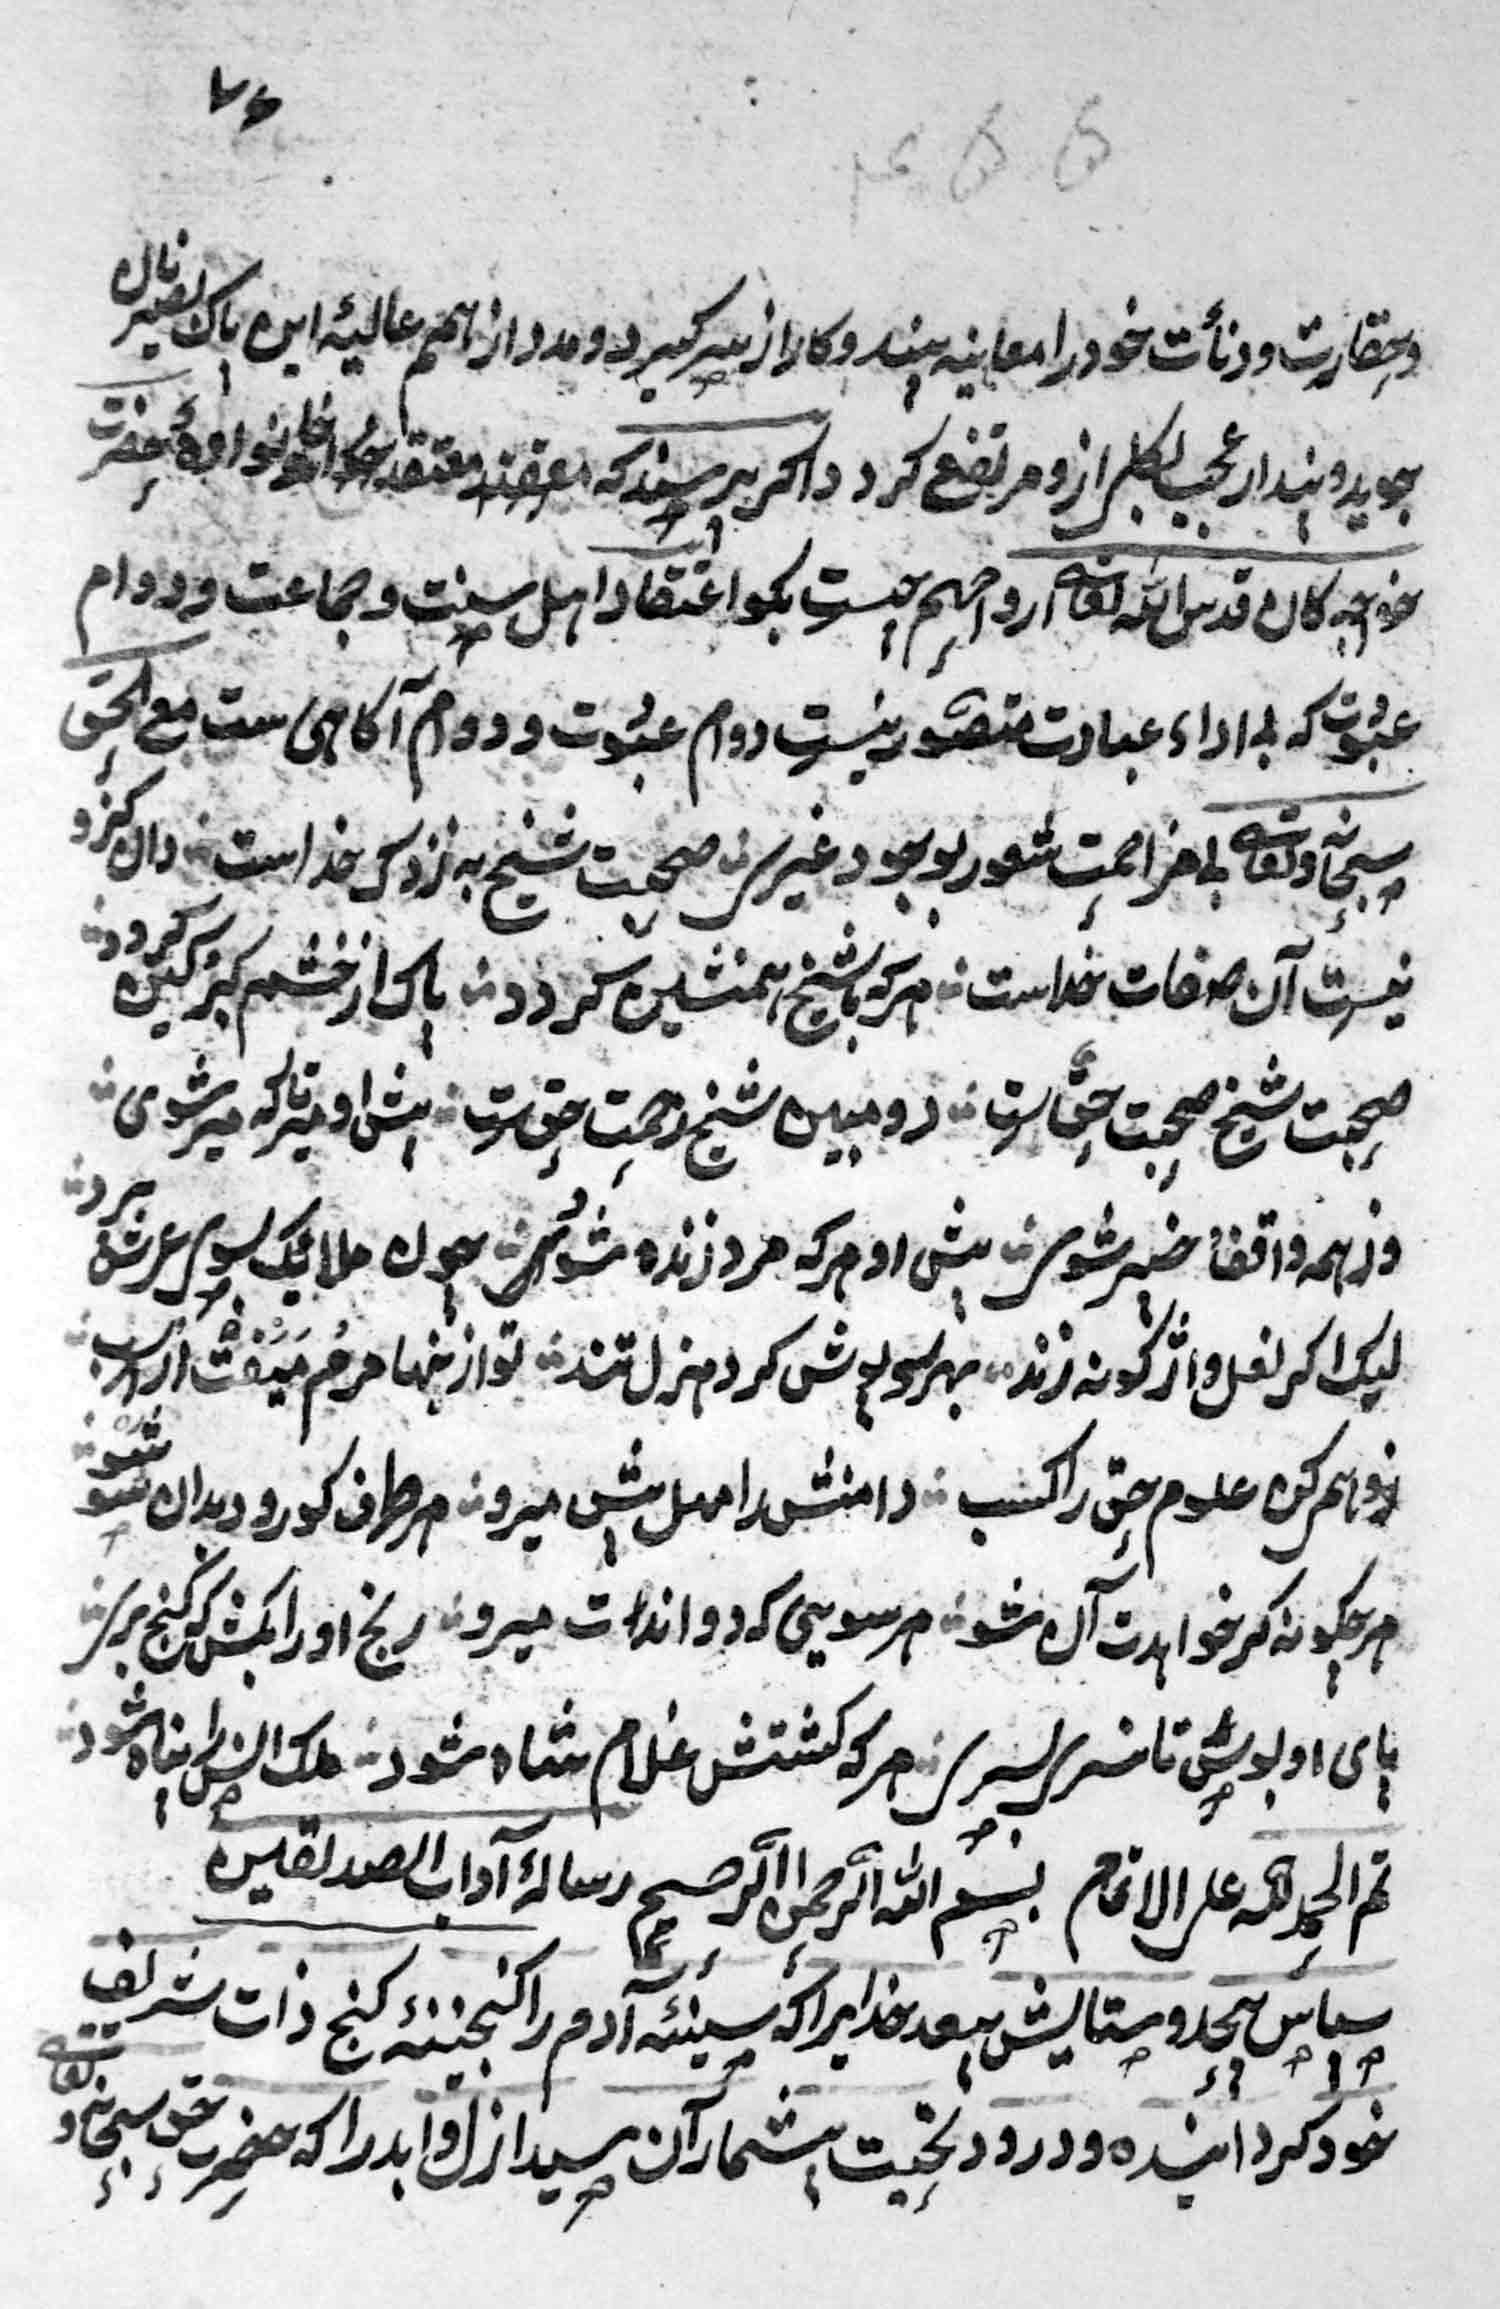 ۷۶
و حقارت و دنائت خود را معاینه بیند و کار از سر گیرد و مدد از همم عالیهٔ این پاک نصیران
بجوید و پندار عجب بکلی ازو مرتفع کردد و اکر پرسند که معتقد خانوادهٔ حضرت
خواجه کان قدس الله تعالی ارواحهم چیست بکو اعتقاد اهل سنت و جماعت و دوام
عبودت که بی اداء عبادت متصور نیست دوام عبودت و دوام آکاهی ست مع الحق
سبحانه و تعالی بی مزاحمت شعور بوجود غیری صحبت شیخ به ز ذکر خداست دان کزو
نیست آن صفات خداست هر که با شیخ همنشین کردد پاک از خشم و کبر و کین کردد
صحبت شیخ صحبت حق ست دو مبین شیخ رحمت حق ست پیش او میر تا که میر شوی
وز همه واقف خبیر شوی پیش او هر که مرد زنده شود چون ملایک بسوی عرش پرد
لیک اکر نعل واژکونه زند بهر روپوش کرد منزل تند تو از ینها مرم میفت از اسب
زو همی کن علوم حق را کسب دامنش را مهل پیش میرو هر طرف کو رود بدان سو شو
هر چکونه که خواهدت آن شو هر سویی که دواندت میرو رنج او را بکش که کنج بری
پای او بوس تا سری بسری هر که کشتش غلام شاه شود ملک الناس را پناه شود
تم الحمد لله علی الاتمام بسم الله الرحمن الرحیم رسالهٔ آداب الصدیقین
سپاس بیحد و ستایش بیعد خدایرا که سینهٔ آدم را کنجینهٔ کنج ذات شریف
خود کردانیده و درود و تحیت بیشمار آن سید ازل و ابد را که حضرت حق سبحانه و تعالی